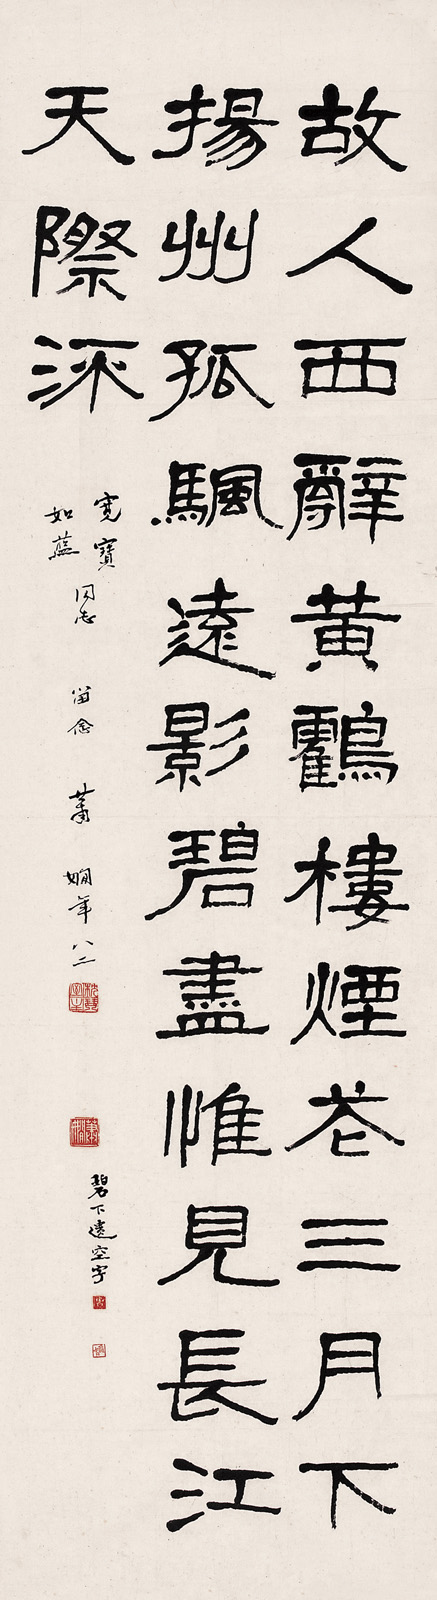 故人西辭黃鸖樓煙花三月下
揚州孤颿遠影碧盡惟見長江
天際流
寬寶
如
同志 留念 蕭嫻年八二
枕琴室主
蕭嫻
碧下遺空字